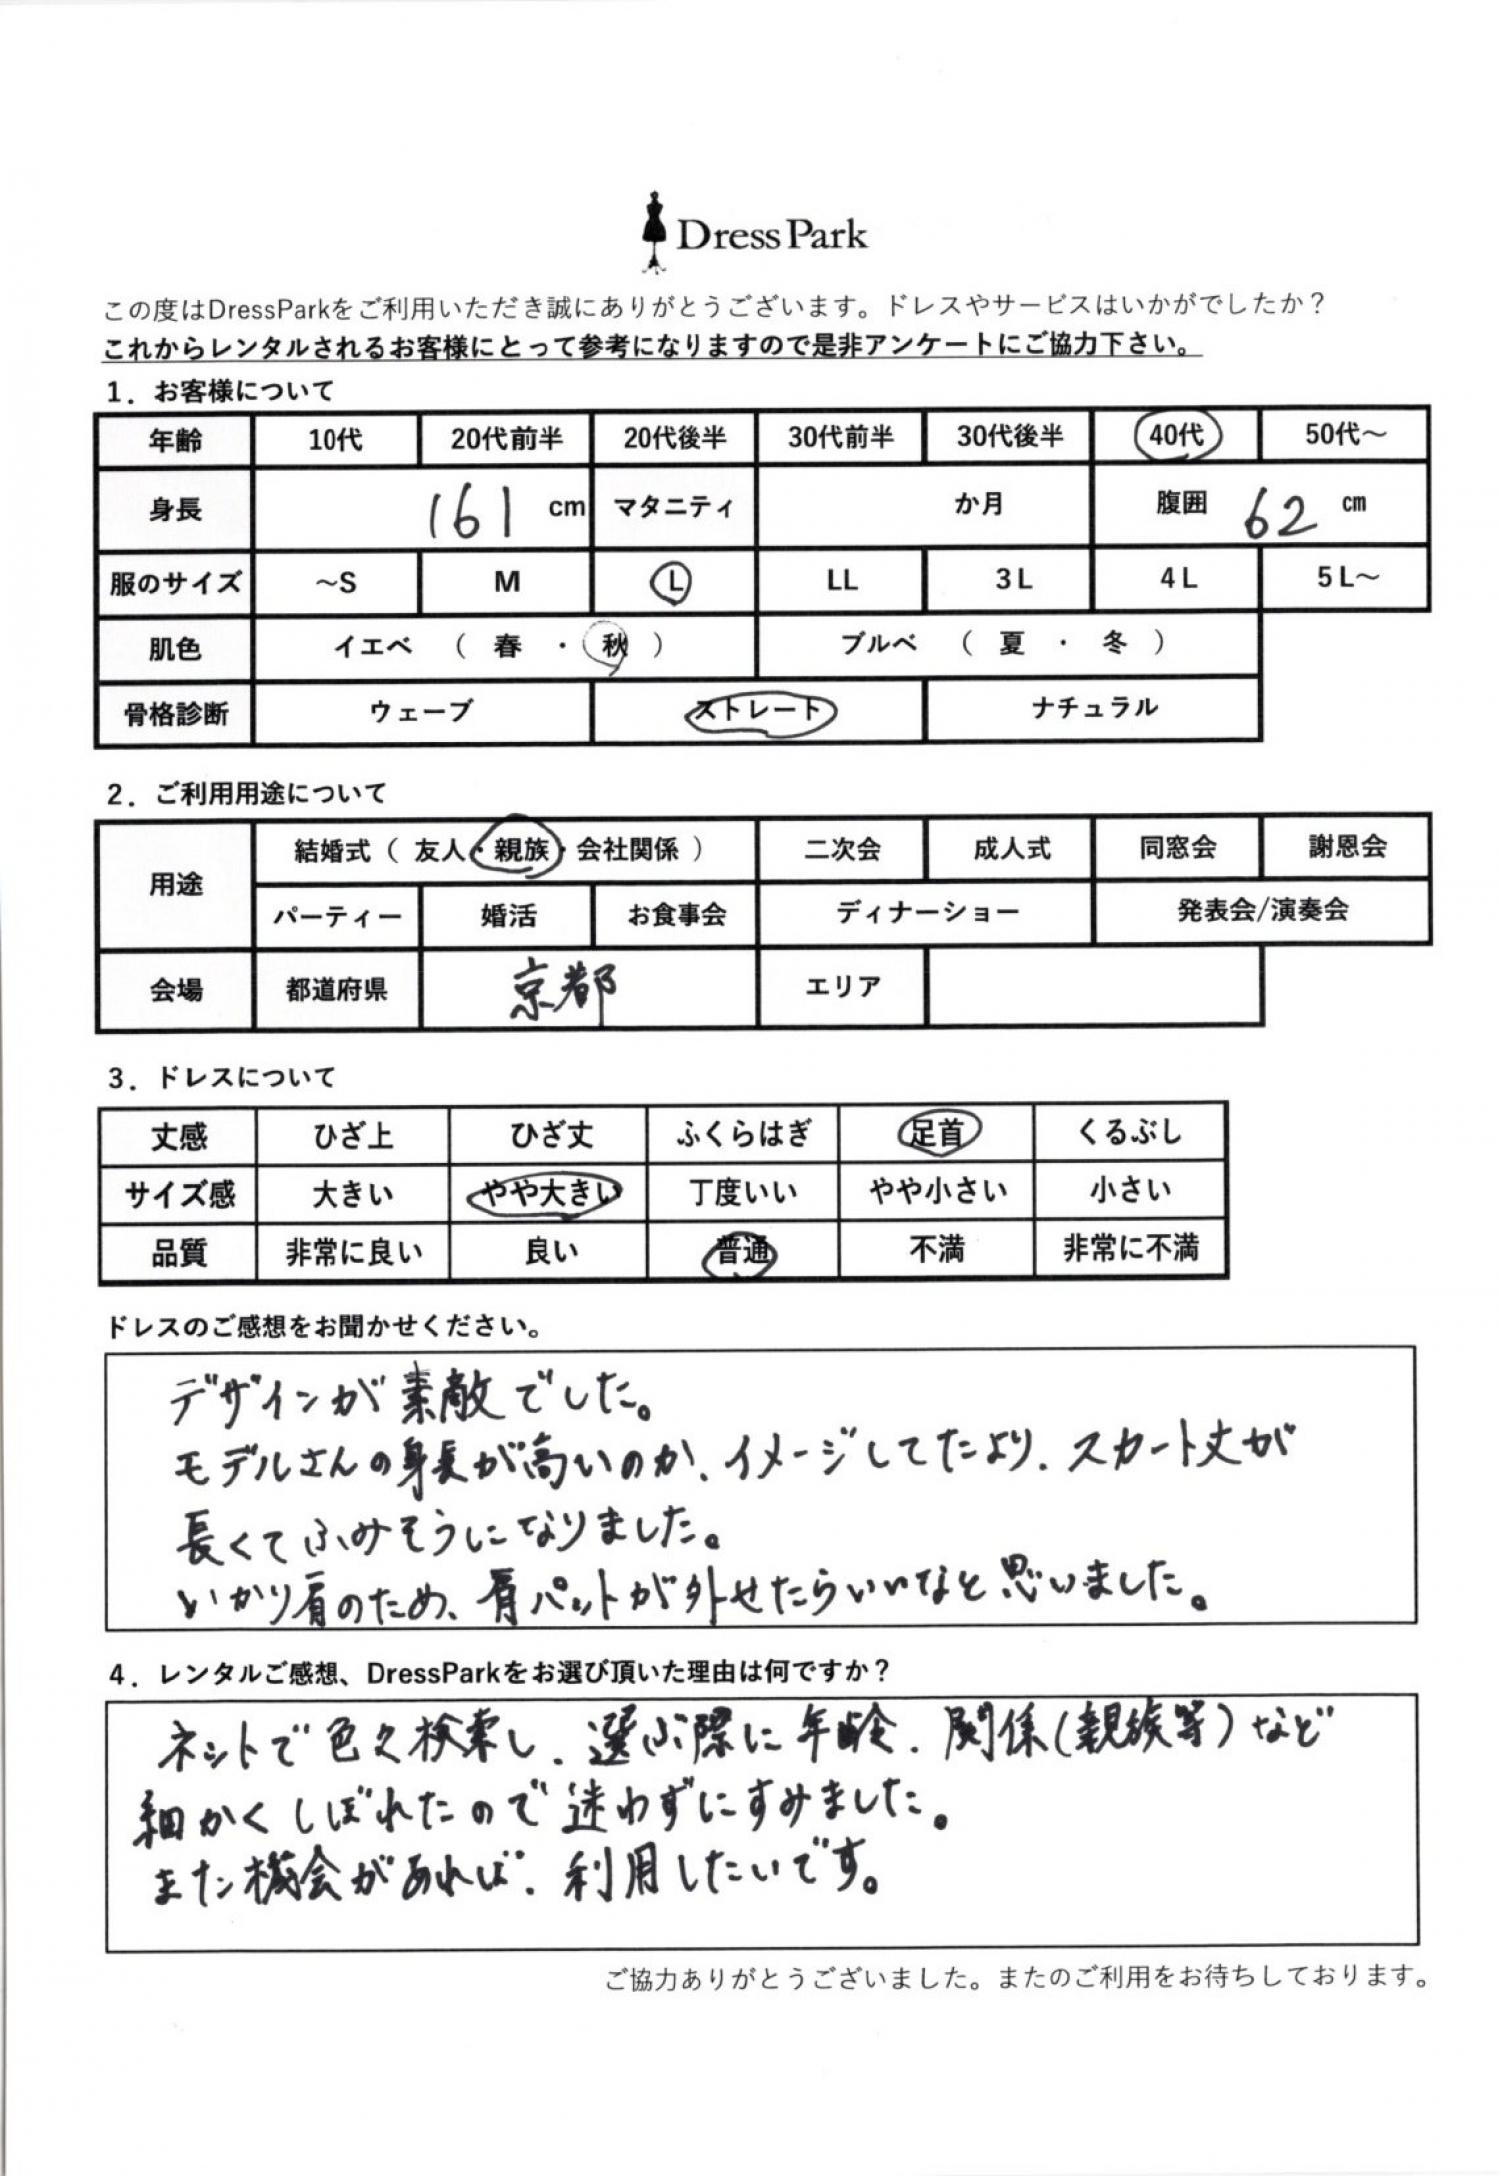 Dress Park
この度はDressParkをご利用いただき誠にありがとうございます。ドレスやサービスはいかがでしたか？
これからレンタルされるお客様にとって参考になりますので是非アンケートにご協力下さい。
1．お客様について
年齢 10代 20代前半 20代後半 30代前半 30代後半 40代 50代～
身長 161 cm マタニティ か月 腹囲 62 cm
服のサイズ ～S M L LL 3L 4L 5L～
肌色 イエベ （ 春 ・ 秋 ） ブルベ （ 夏 ・ 冬 ）
骨格診断 ウェーブ ストレート ナチュラル
2．ご利用用途について
用途 結婚式（ 友人・親族・会社関係 ） 二次会 成人式 同窓会 謝恩会
パーティー 婚活 お食事会 ディナーショー 発表会/演奏会
会場 都道府県 京都 エリア
3．ドレスについて
丈感 ひざ上 ひざ丈 ふくらはぎ 足首 くるぶし
サイズ感 大きい やや大きい 丁度いい やや小さい 小さい
品質 非常に良い 良い 普通 不満 非常に不満
ドレスのご感想をお聞かせください。
デザインが素敵でした。
モデルさんの身長が高いのか、イメージしてたより、スカート丈が
長くてふみそうになりました。
いかり肩のため、肩パットが外せたらいいなと思いました。
4．レンタルご感想、DressParkをお選び頂いた理由は何ですか？
ネットで色々検索し、選ぶ際に年齢、関係(親族等)など
細かくしぼれたので迷わずにすみました。
また機会があれば、利用したいです。
ご協力ありがとうございました。またのご利用をお待ちしております。